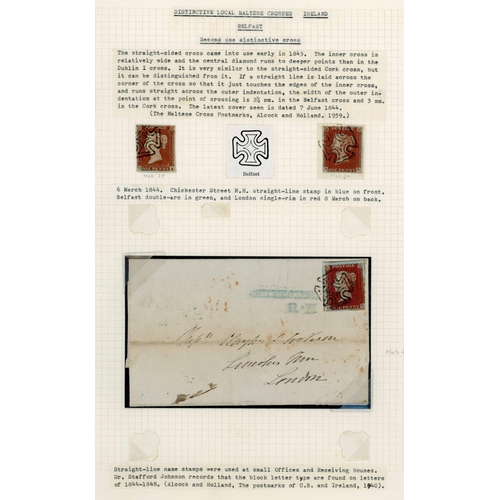 DISTINCTIVE LOCAL MALTESE CROSSES IRELAND
BELFAST
Second use distinctive cross
The straight-sided cross came into use early in 1843. The inner cross is
relatively wide and the central diamond runs to deeper points than in the
Dublin 1 cross, It is very similar to the straight-sided Cork cross, but
it can be distinguished from it. If a straight line is laid across the
corner of the cross so that it just touches the edges of the inner cross,
and runs straight across the outer indentation, the width of the outer in-
dentation at the point of crossing is 2½ mm. in the Belfast cross and 3 mm.
in the Cork cross. The latest cover seen is dated 7 June 1844.
(The Maltese Cross Postmarks, Alcock and Holland. 1959.)
Belfast
6 March 1844. Chichester Street R.H. straight-line stamp in blue on front.
Belfast double-arc in green, and London single-rim in red 8 March on back.
POSTAGE
ONE PENNY
R.H
London
Straight-line name stamps were used at small Offices and Receiving Houses.
Dr. Stafford Johnson records that the block letter type are found on letters
of 1844-1848. (Alcock and Holland, The postmarks of G.B. and Ireland, 1940).